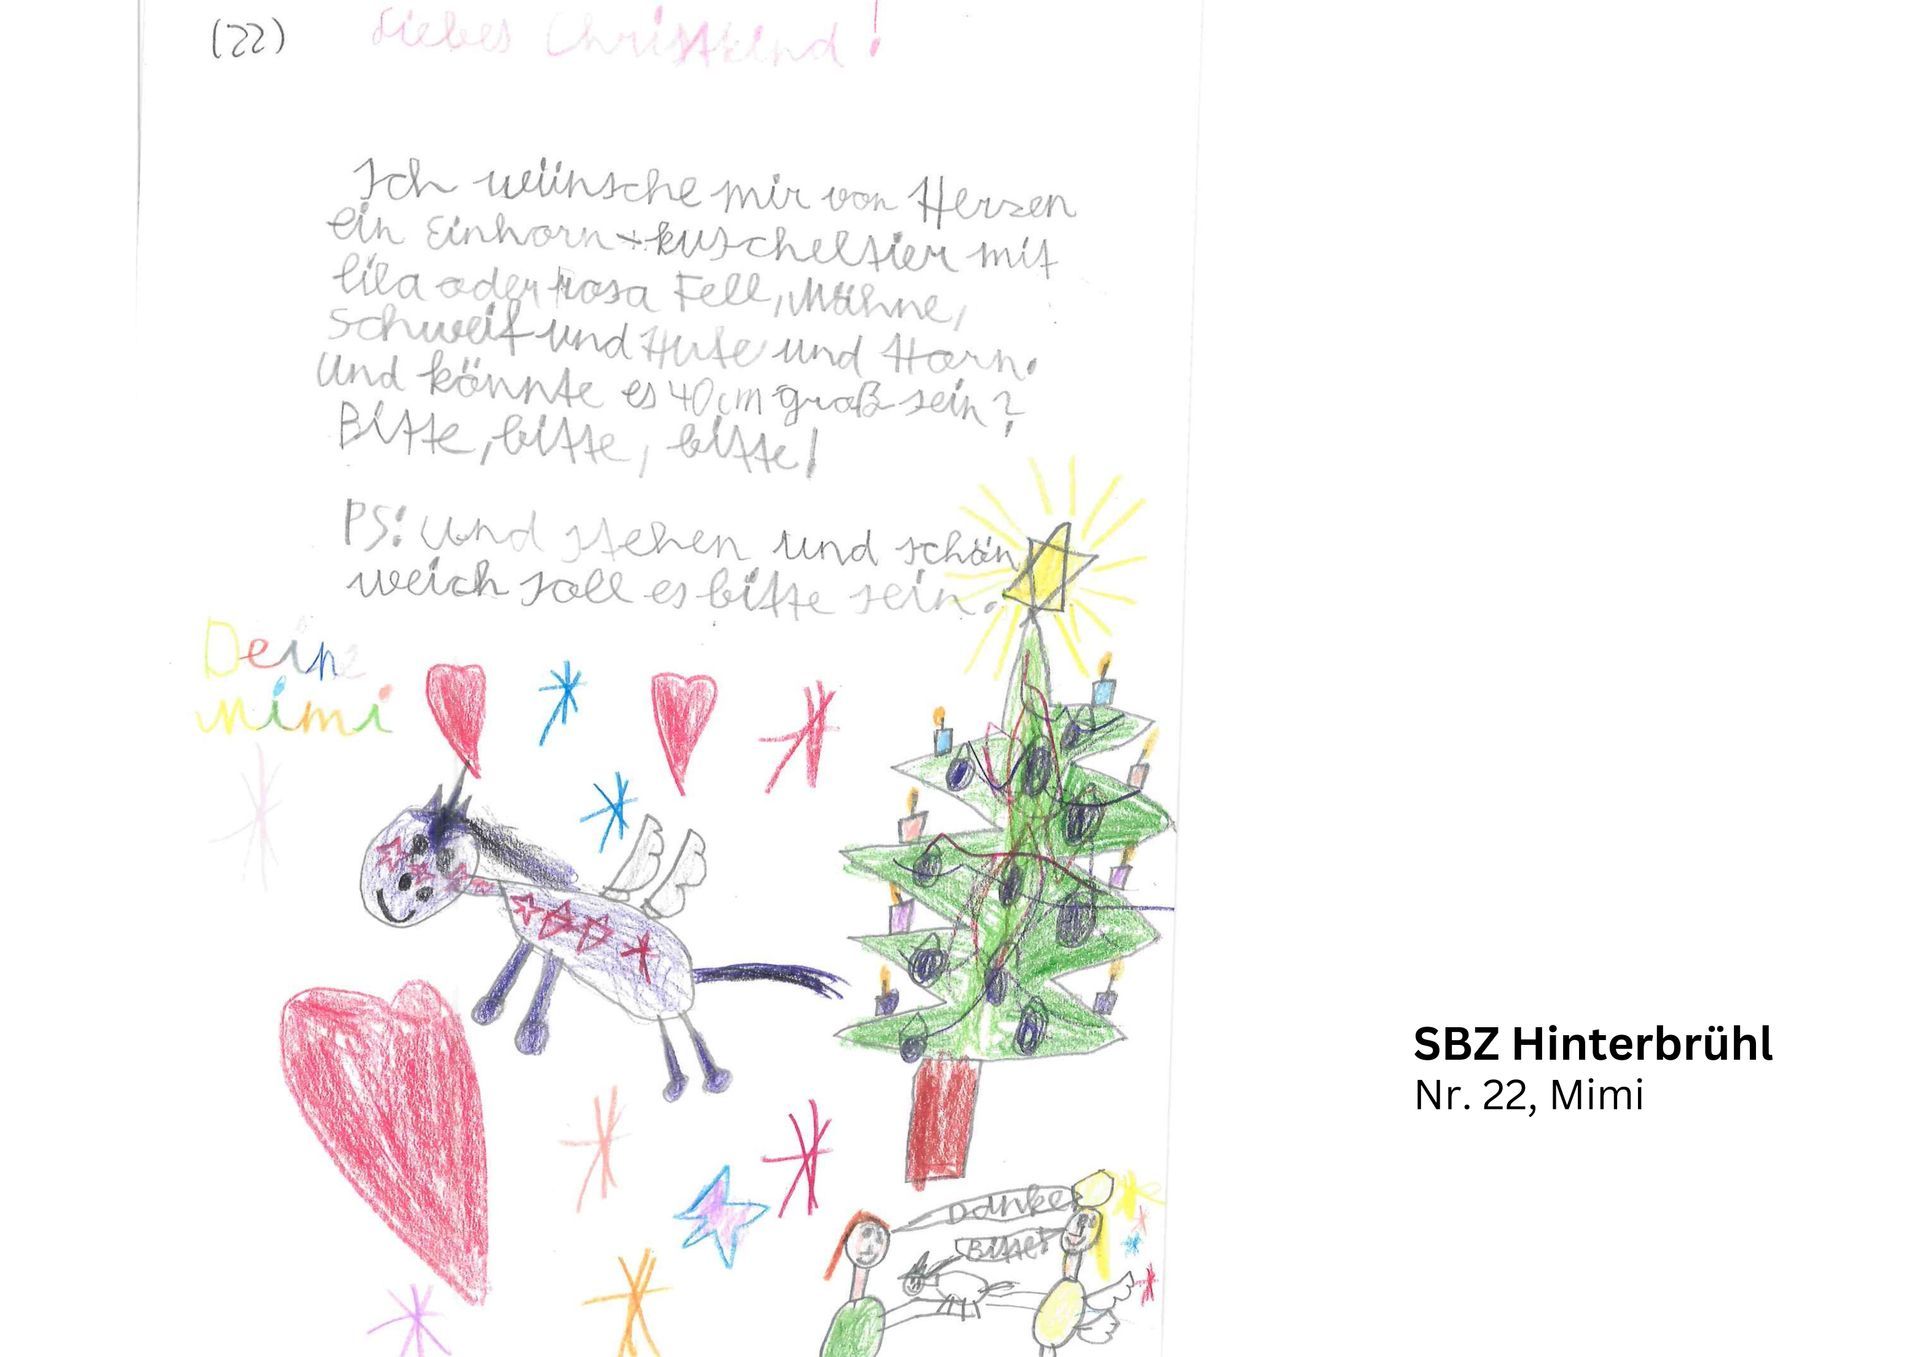 (22) Liebes Christkind!
Ich wünsche mir von Herzen
ein Einhorn-kuscheltier mit
lila oder rosa Fell, Mähne,
Schweif und Hufe und Horn.
Und könnte es 40cm groß sein?
Bitte, bitte, bitte!
PS: Und stehen und schön
weich soll es bitte sein.
Deine
Mimi
Danke
Bitte!
SBZ Hinterbrühl
Nr. 22, Mimi